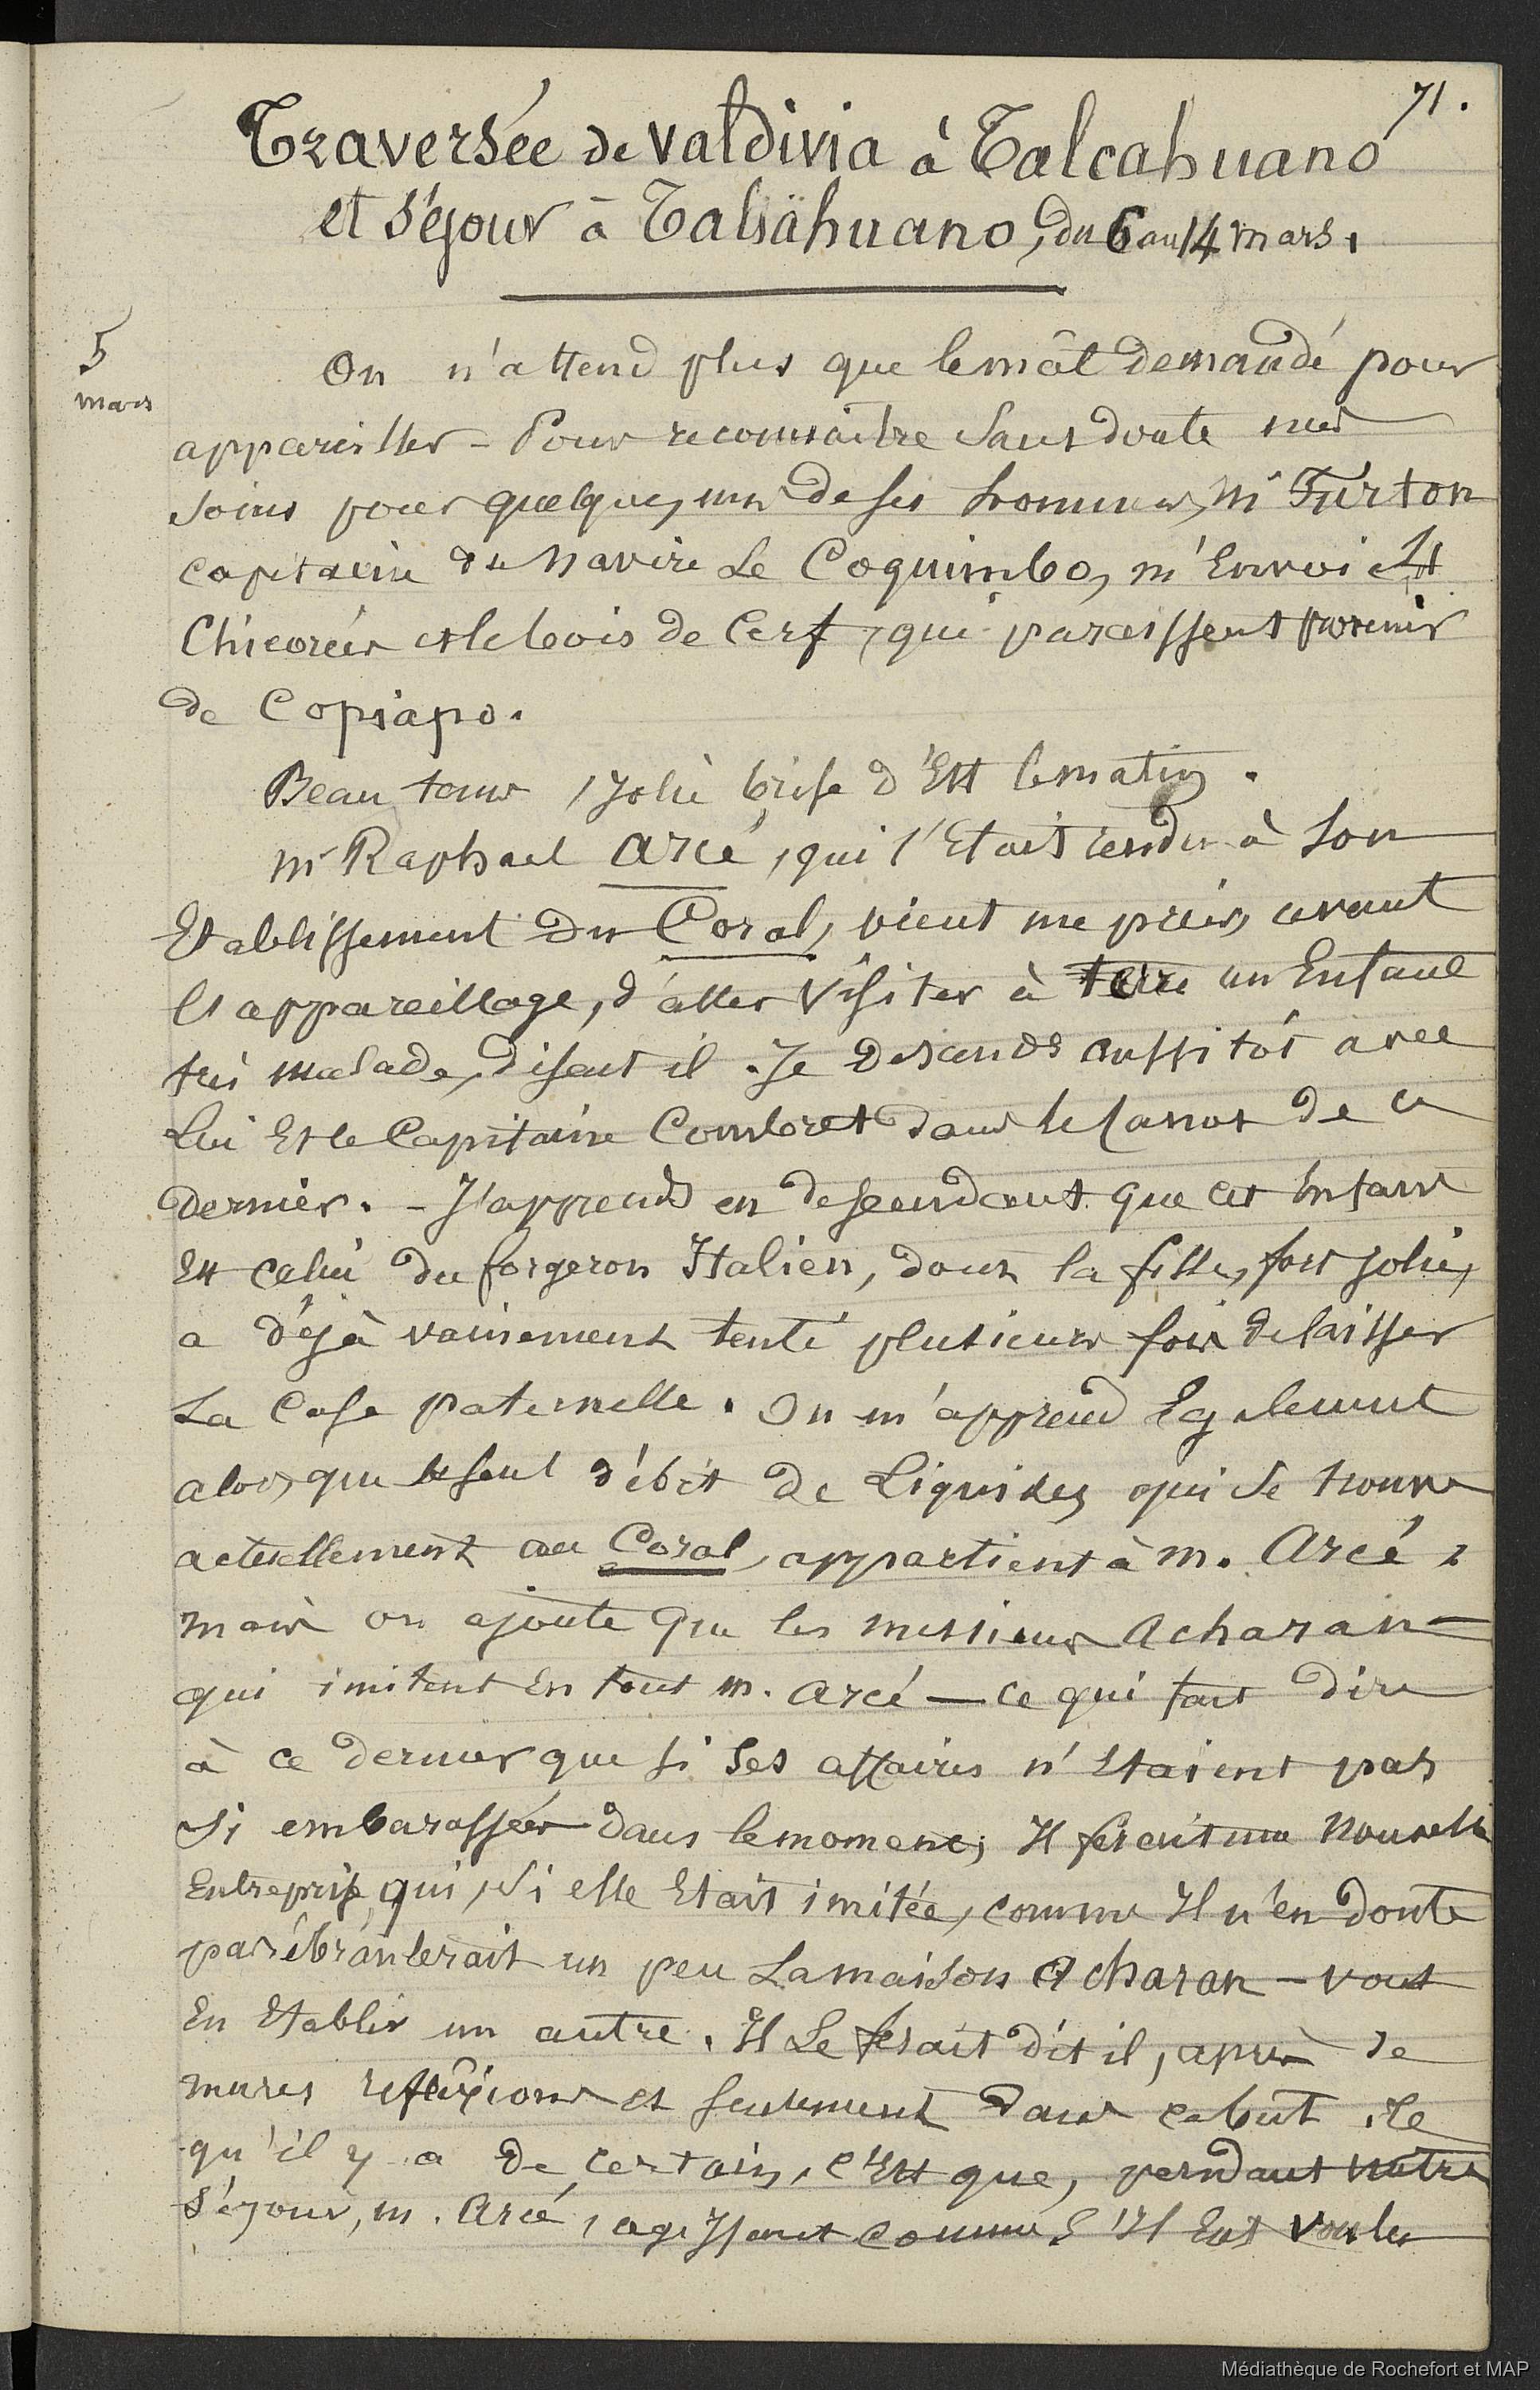 71.
Traversée de Valdivia à Talcahuano
et séjour à Talcahuano, du 6 au 14 mars.
5
mars
On n'attend plus que le mât demandé pour
appareiller - Pour reconnaître sans doute mes
soins pour quelques uns de ses hommes, Mr Turton
capitaine du Navire Le Coquimbo, m'Envoi
Chicorées et le bois de Cerf, qui paraissent
de Copiapo.
Beau tems, Jolie brise d'Est le matin.
Mr Raphael Arcé, qui s'Etait rendu à son
Etablissement du Coral, vient me prier, avant
l'appareillage, d'aller Visiter à terre un Enfant
très malade, disait il. Je descends aussitôt avec
Lui Et le Capitaine Combret dans le canot de ce
dernier. - J'apprends en descendant que cet Enfant
Est celui du forgeron Italien, dont la fille, fort jolie,
a déjà vainement tenté plusieurs fois de laisser
La Case paternelle. On m'apprend Egalement
alors, que le seul débit de Liquides qui se trouve
actuellement au Coral, appartient à M. Arcé,
mais on ajoute que les messieurs Acharan -
qui imitent En tout M. Arcé — ce qui fait dire
à ce dernier que si ses affaires n'Etaient pas
si embarassées dans le moment, Il ferait une Nouvelle
Entreprise qui, si elle Etait imitée, comme Il n'en doute
pas ébranlerait un peu La maison Acharan - vont
En Etablir un autre. Il Le ferait dit il, après de
mures reflexions et seulement dans ce but. Ce
qu'il y a de certain, c'Est que, pendant notre
séjour, M. Arcé, agissant comme s'Il Eut voulu
Médiathèque de Rochefort et MAP